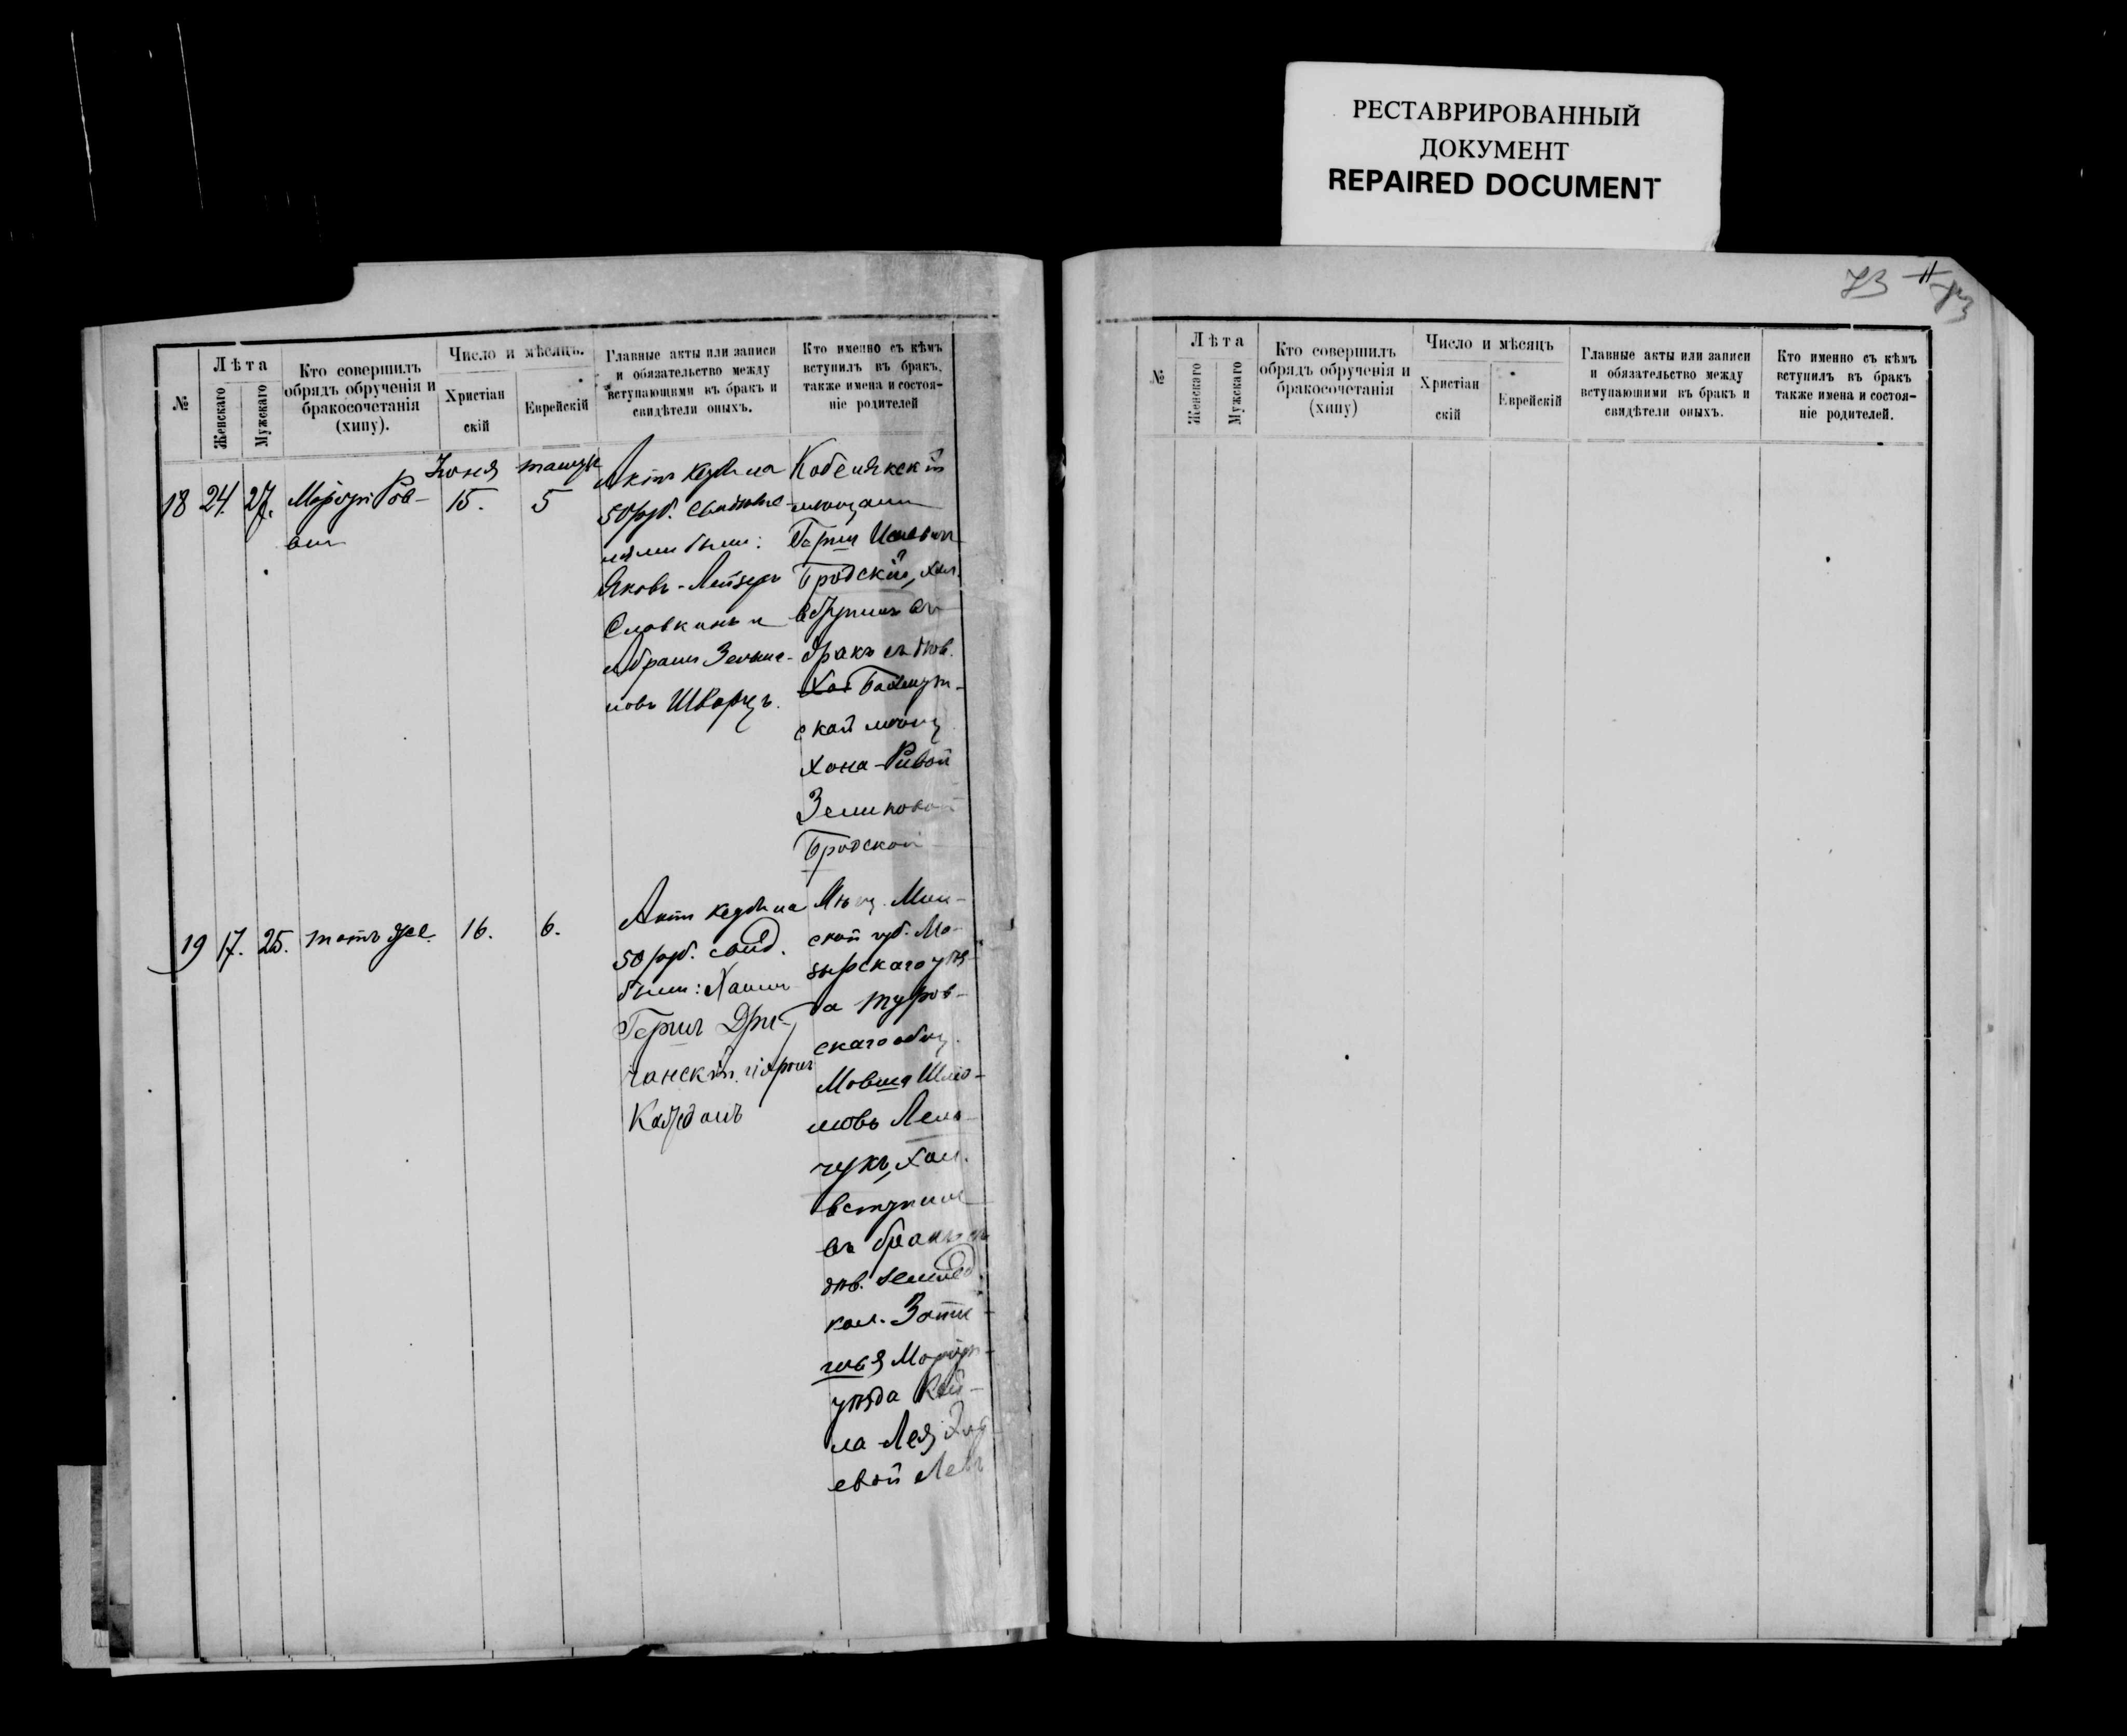 РЕСТАВРИРОВАННЫЙ
ДОКУМЕНТ
REPAIRED DOCUMENT
73
№
Лѣта
Женскаго
Мужскаго
Кто совершилъ
обрядъ обрученія и
бракосочетанія
(хипу).
Число и мѣсяцъ.
Христіан
скій
Еврейскій
Главные акты или записи
и обязательство между
вступающими въ бракъ и
свидѣтели оныхъ.
Кто именно съ кѣмъ
вступилъ въ бракъ,
также имена и состоя-
ніе родителей
18
24.
27.
Рав-
вин
Іюня
15.
5
Актъ на
50 руб. Свидѣте-
лями были:
Яковъ-Лейзеръ
Славкинъ и
Абрамъ
новъ Шварцъ.
Кобелякскій
мѣщан
Герш
Бродскій, хол.
вступилъ въ
бракъ съ дѣв.
Бахмут-
ской мѣщ
Хана-Ривой
Бродской
19
17.
25.
тотъ же.
16.
6.
Актъ на
50 руб. свид.
были: Хаимъ
Гершъ
чанскій
Мѣщ. Мин-
ской губ. Мо-
зырскаго уѣз-
да Туров-
скаго общ.
Мовша Шлио-
мовъ Лель-
чукъ, хол.
вступилъ
въ бракъ съ
дѣв. землед.
кол. Зати-
шья Маріуп
уѣзда Кей-
ла-Лея
евой
№
Лѣта
Женскаго
Мужскаго
Кто совершилъ
обрядъ обрученія и
бракосочетанія
(хипу)
Число и мѣсяцъ
Христіан
скій
Еврейскій
Главные акты или записи
и обязательство между
вступающими въ бракъ и
свидѣтели оныхъ.
Кто именно съ кѣмъ
вступилъ въ бракъ
также имена и состоя-
ніе родителей.